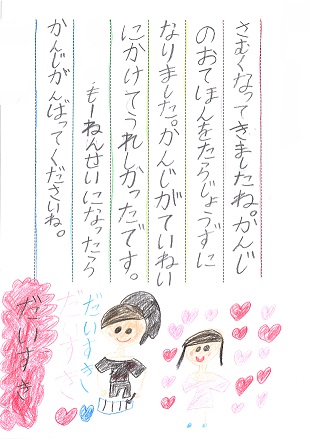 さむくなってきましたね。かんじ
のおてほんをたらじょうずに
なりました。かんじがていねい
にかけてうれしかったです。
もーねんせいになったら
かんじがんばってくださいね。
だいすき
だいすき
だいすき